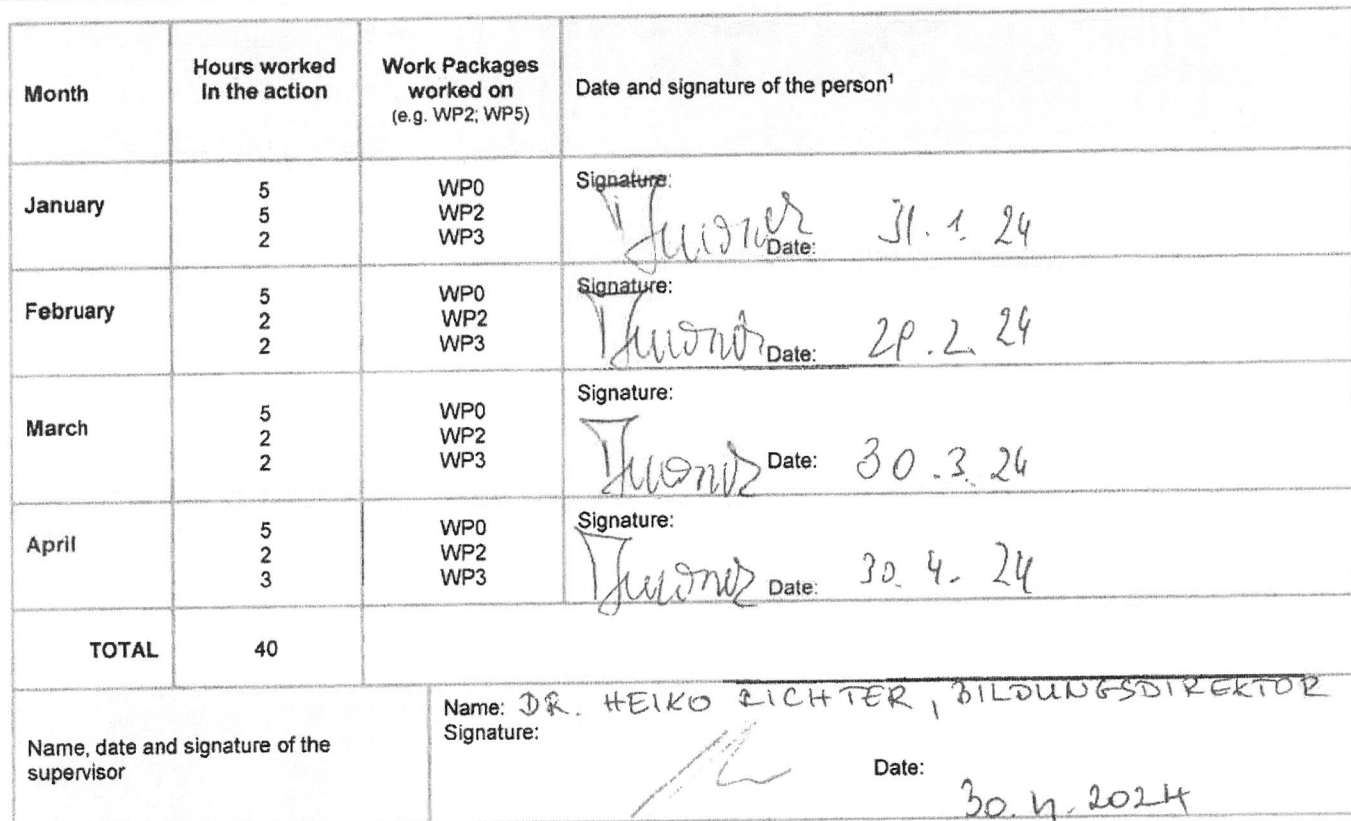 Month
Hours worked
in the action
Work Packages
worked on
(e.g. WP2; WP5)
Date and signature of the person¹
January
5
5
2
WP0
WP2
WP3
Signature:
Date: 31. 1. 24
February
5
2
2
WP0
WP2
WP3
Signature:
Date: .2. 24
March
5
2
2
WP0
WP2
WP3
Signature:
Date: 30.3.24
April
5
2
3
WP0
WP2
WP3
Signature:
Date: 30. 4. 24
TOTAL
40
Name, date and signature of the
supervisor
Name: DR. HEIKO RICHTER, BILDUNGSDIREKTOR
Signature:
Date:
30. 4. 2024